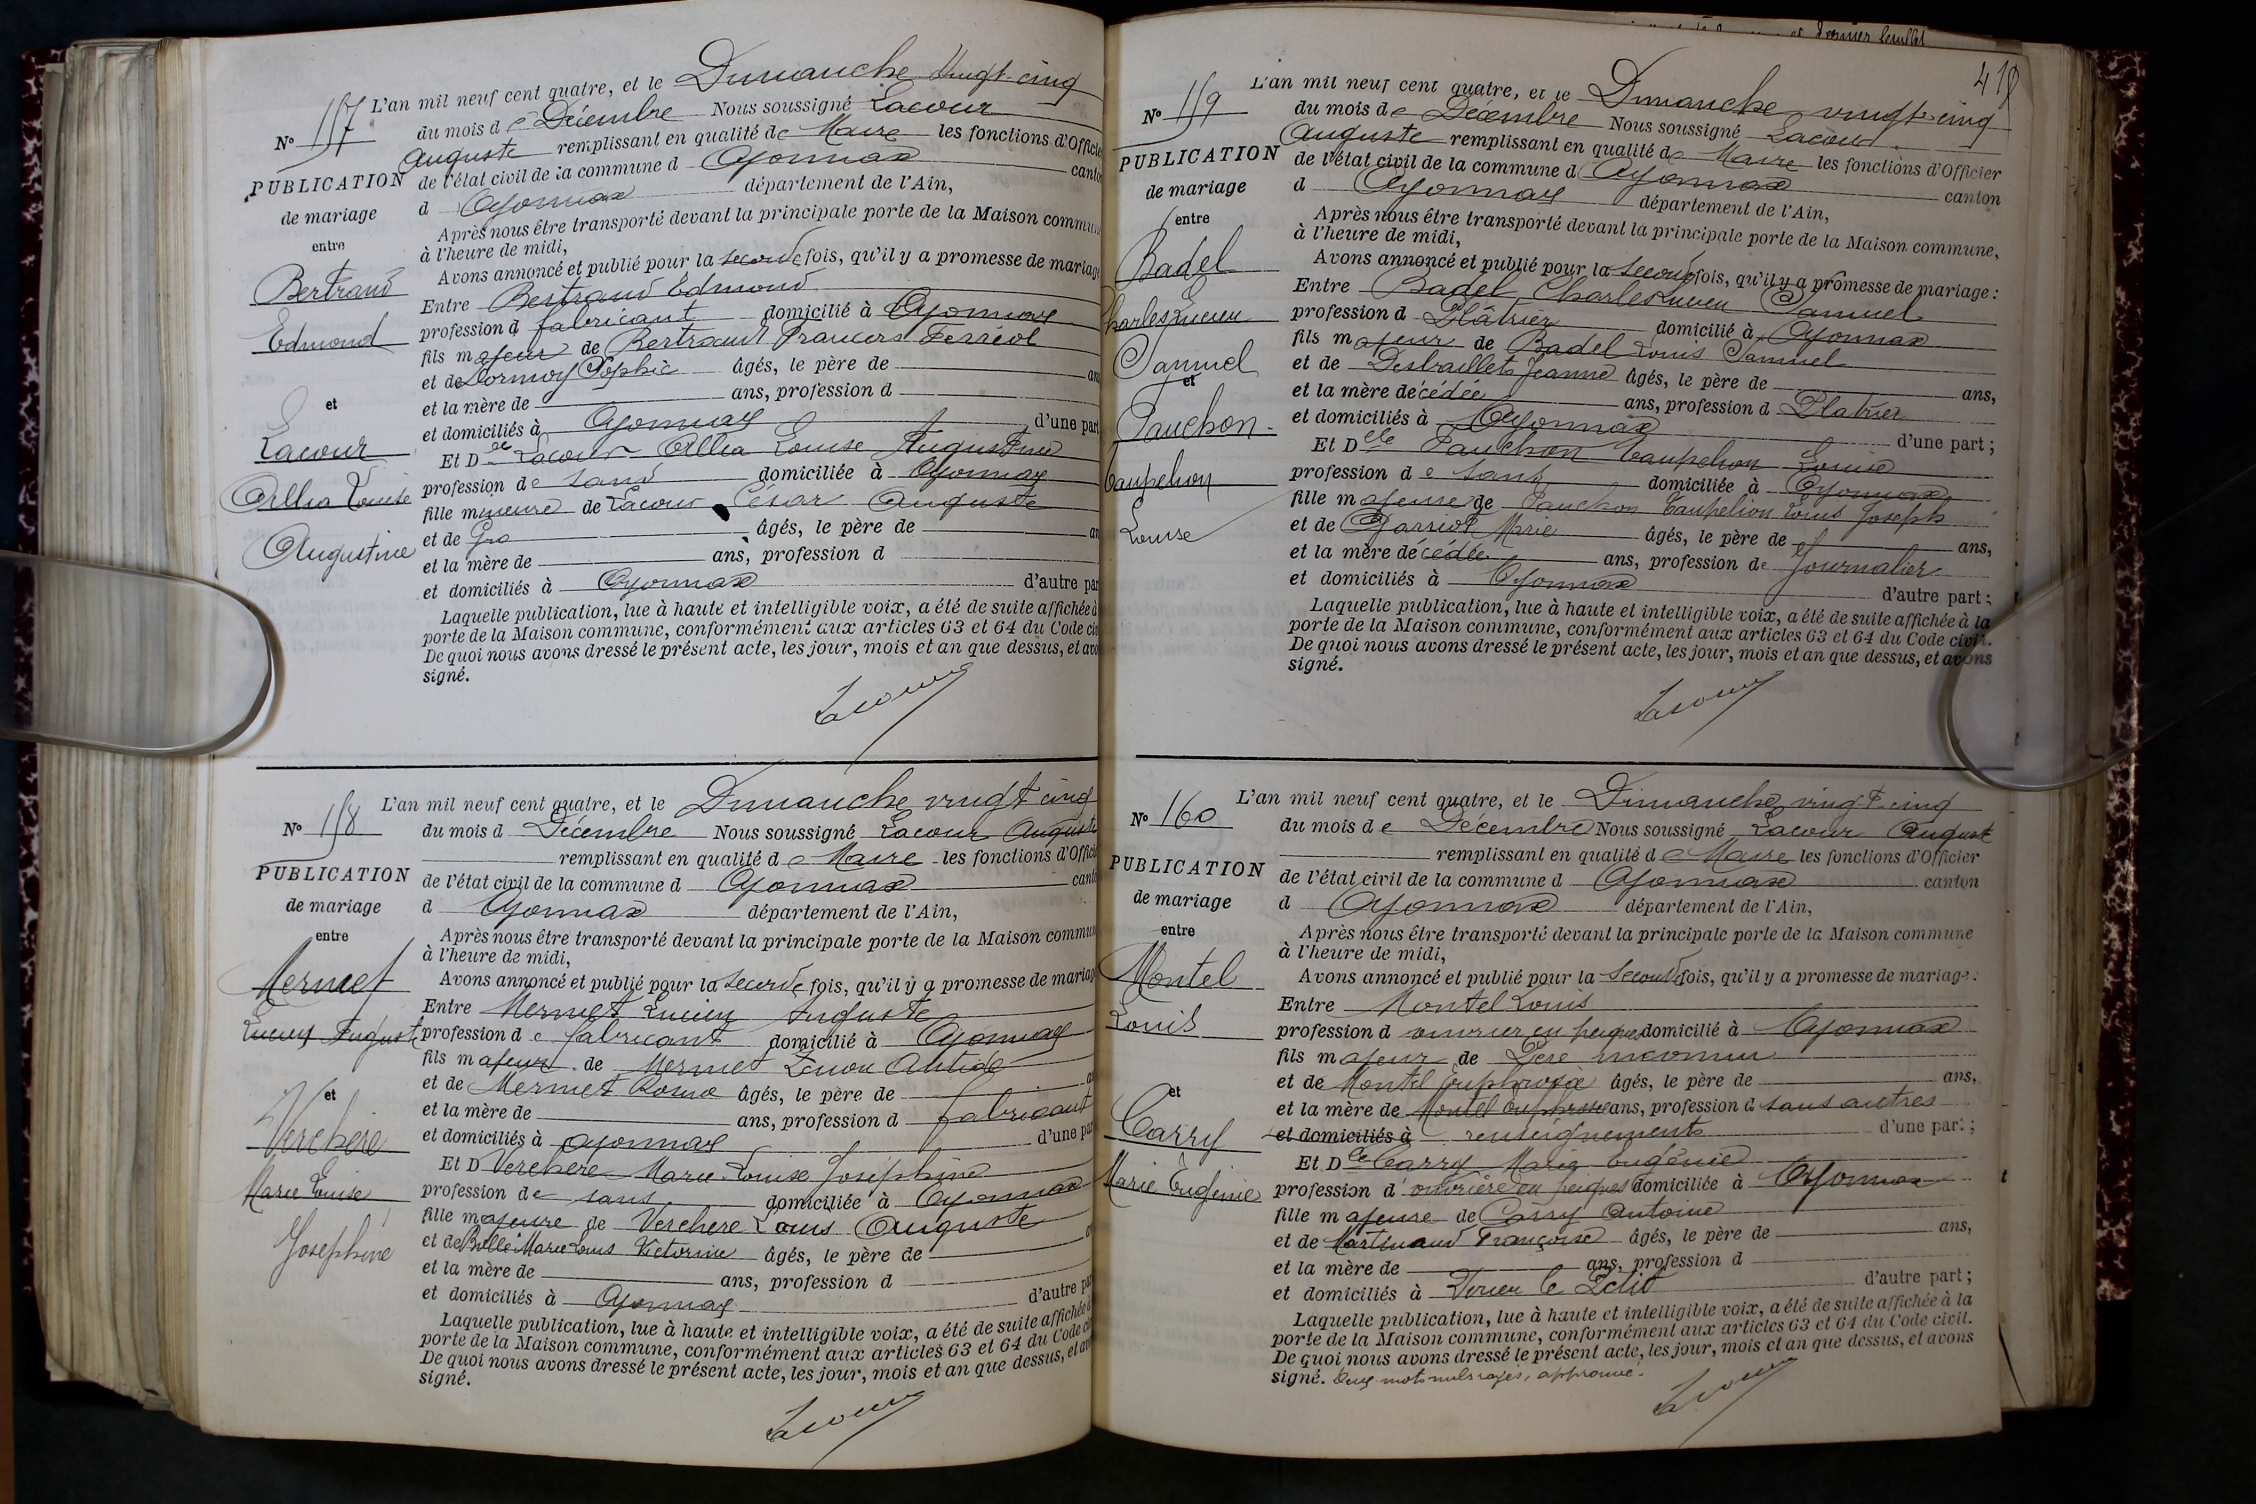 L'an mil neuf cent quatre, et le Dimanche Vingt-cinq
N° 157 du mois de Décembre Nous soussigné Lacour
Auguste remplissant en qualité de Maire les fonctions d'Officie
PUBLICATION de l'état civil de la commune d Oyonnax canto
de mariage d Oyonnax département de l'Ain,
Après nous être transporté devant la principale porte de la Maison commun
entre à l'heure de midi,
Avons annoncé et publié pour la seconde fois, qu'il y a promesse de mariage
Bertrand Entre Bertrand Edmond
Edmond profession d fabricant domicilié à Oyonnax
fils majeur de Bertrand François Ferréol
et de Dormoy Sophie âgés, le père de ans
et et la mère de ans, profession d
et domiciliés à Oyonnax d'une part
Lacour Et Delle Lacour Allia Louise Augustine
Allia Louise profession de sans domiciliée à Oyonnax
fille mineure de Lacour César Auguste
Augustine et de Gra âgés, le père de an
et la mère de ans, profession d
et domiciliés à Oyonnax d'autre par
Laquelle publication, lue à haute et intelligible voix, a été de suite affichée à
porte de la Maison commune, conformément aux articles 63 et 64 du Code civ
De quoi nous avons dressé le présent acte, les jour, mois et an que dessus, et avo
signé.
Lacour
L'an mil neuf cent quatre, et le Dimanche vingt cinq
N° 158 du mois d Décembre Nous soussigné Lacour Auguste
remplissant en qualité de Maire les fonctions d'Offici
PUBLICATION de l'état civil de la commune d Oyonnax canto
de mariage d Oyonnax département de l'Ain,
entre Après nous être transporté devant la principale porte de la Maison commun
à l'heure de midi,
Mermet Avons annoncé et publié pour la seconde fois, qu'il y a promesse de mariag
Entre Mermet Lucien Auguste
Lucien Auguste profession de fabricant domicilié à Oyonnax
fils majeur de Mermet Zénon Antide
et et de Mermet Rosine âgés, le père de an
et la mère de ans, profession d fabricant
Verchère et domiciliés à Oyonnax d'une par
Et D Verchère Marie Louise Joséphine
Marie Louise profession de sans domiciliée à Oyonnax
fille majeure de Verchère Louis Auguste
Joséphine et de Bollé Marie Louis Victorine âgés, le père de a
et la mère de ans, profession d
et domiciliés à Oyonnax d'autre par
Laquelle publication, lue à haute et intelligible voix, a été de suite affichée à
porte de la Maison commune, conformément aux articles 63 et 64 du Code ci
De quoi nous avons dressé le présent acte, les jour, mois et an que dessus, et avo
signé.
Lacour
et dernier feuillet
418
L'an mil neuf cent quatre, et le Dimanche vingt-cinq
N° 159 du mois de Décembre Nous soussigné Lacour
Auguste remplissant en qualité de Maire les fonctions d'Officier
PUBLICATION de l'état civil de la commune d Oyonnax canton
de mariage d Oyonnax département de l'Ain,
entre Après nous être transporté devant la principale porte de la Maison commune,
à l'heure de midi,
Badel Avons annoncé et publié pour la seconde fois, qu'il y a promesse de mariage :
Entre Badel Charles Lucien Samuel
Charles Lucien profession d Plâtrier domicilié à Oyonnax
fils majeur de Badel Louis Samuel
Samuel et de Desbraillets Jeanne âgés, le père de ans,
et et la mère décédée ans, profession d Plâtrier
Pauchon et domiciliés à Oyonnax d'une part ;
Et Delle Pauchon Taupelion Louise
Taupelion profession de sans domiciliée à Oyonnax
fille majeure de Pauchon Taupelion Louis Joseph
Louise et de Marie âgés, le père de ans,
et la mère décédée ans, profession de Journalier
et domiciliés à Oyonnax d'autre part ;
Laquelle publication, lue à haute et intelligible voix, a été de suite affichée à la
porte de la Maison commune, conformément aux articles 63 et 64 du Code civil.
De quoi nous avons dressé le présent acte, les jour, mois et an que dessus, et avons
signé.
Lacour
L'an mil neuf cent quatre, et le Dimanche vingt cinq
N° 160 du mois de Décembre Nous soussigné Lacour Auguste
remplissant en qualité de Maire les fonctions d'Officier
PUBLICATION de l'état civil de la commune d Oyonnax canton
de mariage d Oyonnax département de l'Ain,
entre Après nous être transporté devant la principale porte de la Maison commune
à l'heure de midi,
Montel Avons annoncé et publié pour la seconde fois, qu'il y a promesse de mariage :
Entre Montel Louis
Louis profession d ouvrier en peignes domicilié à Oyonnax
fils majeur de Père inconnu
et de Montel Euphrosie âgés, le père de ans,
et et la mère de Montel Euphrosie ans, profession d sans autres
Carry et domiciliés à renseignements d'une part ;
Et Delle Carry Marie Eugénie
Marie Eugénie profession d ouvrière en peignes domiciliée à Oyonnax
fille majeure de Carry Antoine
et de Martinand Françoise âgés, le père de ans,
et la mère de ans, profession d
et domiciliés à Virieu le Petit d'autre part ;
Laquelle publication, lue à haute et intelligible voix, a été de suite affichée à la
porte de la Maison commune, conformément aux articles 63 et 64 du Code civil.
De quoi nous avons dressé le présent acte, les jour, mois et an que dessus, et avons
signé. Deux mots nuls rayés, approuvé.
Lacour